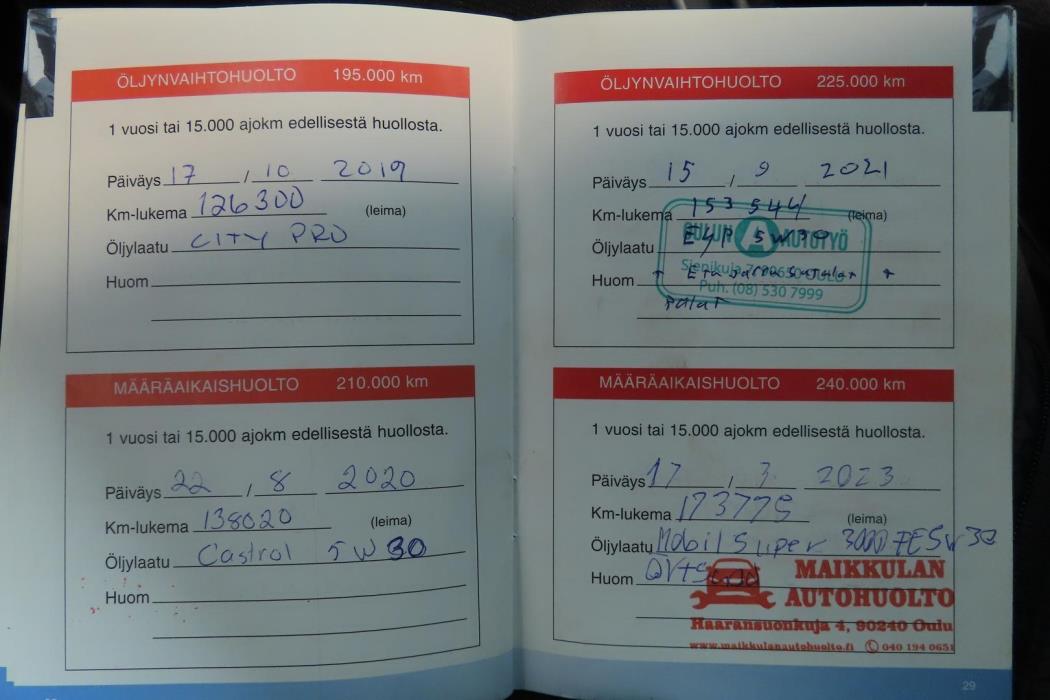 ÖLJYNVAIHTOHUOLTO 195.000 km
1 vuosi tai 15.000 ajokm edellisestä huollosta.
Päiväys 17 / 10 2019
Km-lukema 126300 (leima)
Öljylaatu CITY PRO
Huom
MÄÄRÄAIKAISHUOLTO 210.000 km
1 vuosi tai 15.000 ajokm edellisestä huollosta.
Päiväys 22 / 8 2020
Km-lukema 138020 (leima)
Öljylaatu Castrol 5W30
Huom
ÖLJYNVAIHTOHUOLTO 225.000 km
1 vuosi tai 15.000 ajokm edellisestä huollosta.
Päiväys 15 / 9 2021
Km-lukema 153544 (leima)
Öljylaatu 5W30
OULUN AUTOTYÖ
Huom + Etu jarrusatulat +
Sienikuja 90650 OULU
Puh. (08) 530 7999
palat
MÄÄRÄAIKAISHUOLTO 240.000 km
1 vuosi tai 15.000 ajokm edellisestä huollosta.
Päiväys 17 / 3 2023
Km-lukema 173775 (leima)
Öljylaatu Mobil Super 3000 FE 5W30
Huom
MAIKKULAN
AUTOHUOLTO
Haaransuonkuja 4, 90240 Oulu
www.maikkulanautohuolto.fi 040 194 0651
29